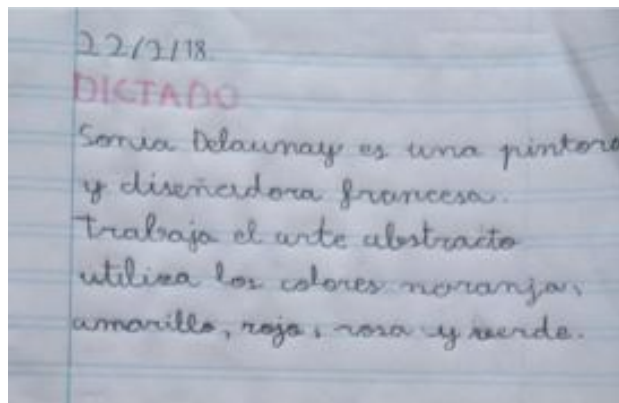 22/2/18.
DICTADO
Sonia Delaunay es una pintora
y diseñadora francesa.
Trabaja el arte abstracto
utiliza los colores naranja,
amarillo, rojo, rosa y verde.